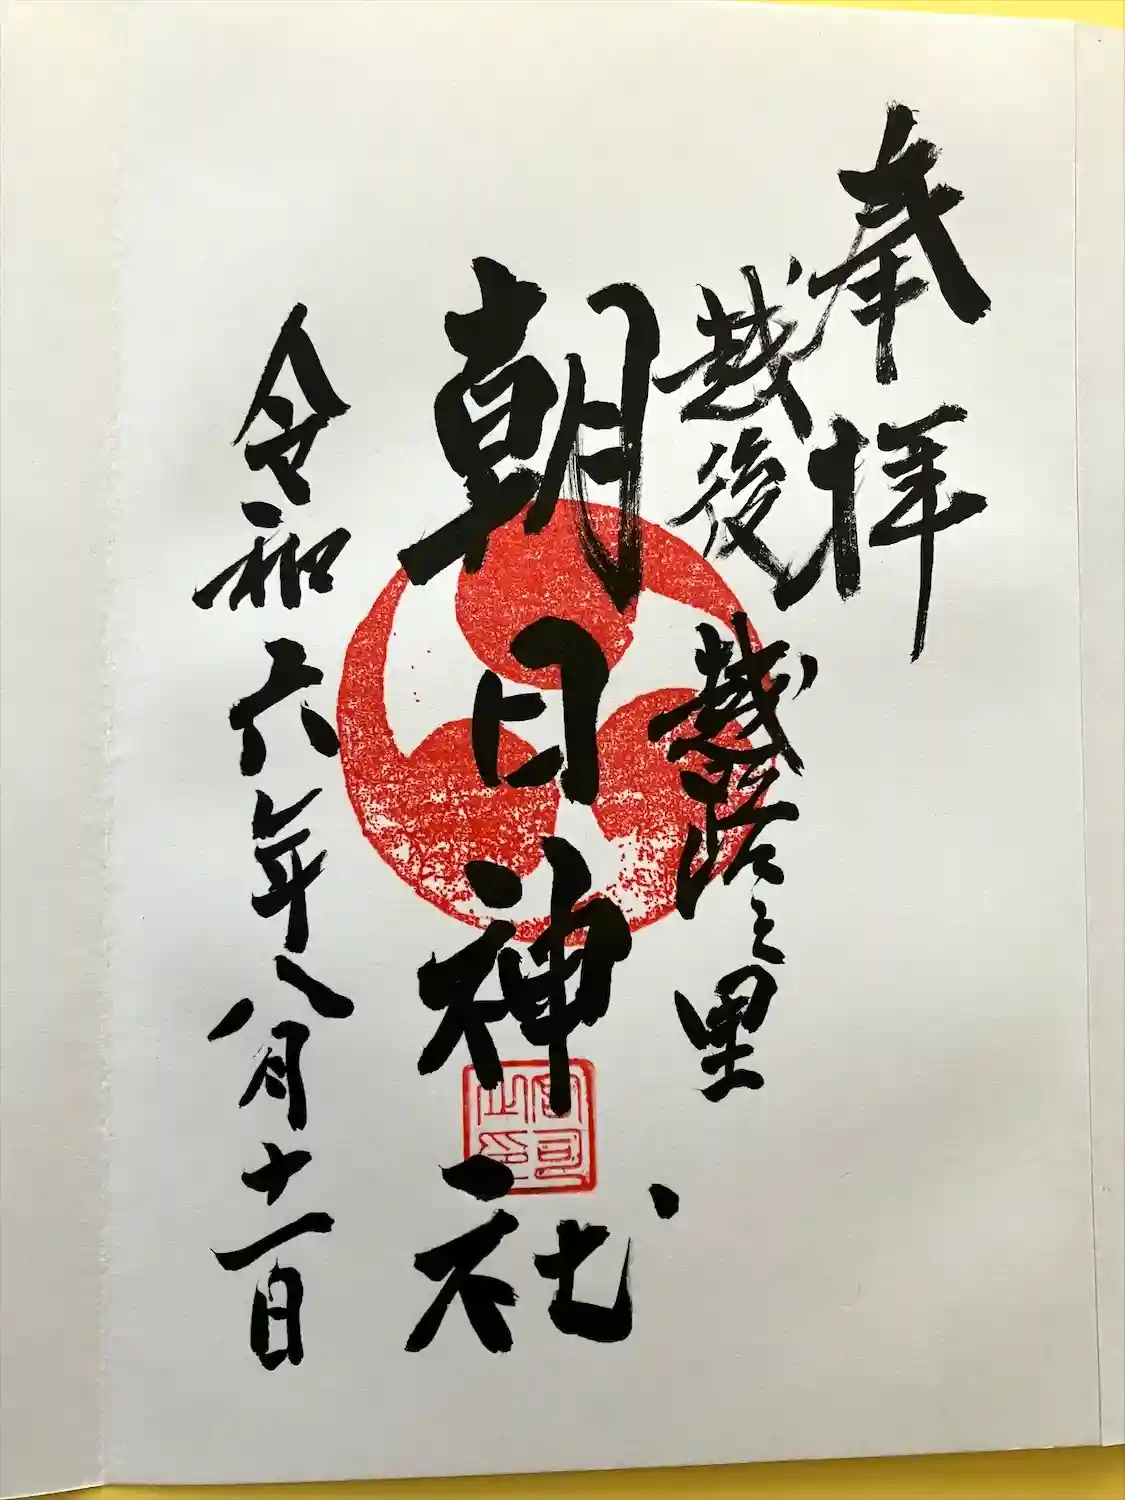 奉拝
越後 越路之里
朝日神社
令和六年八月十一日
宮司之印